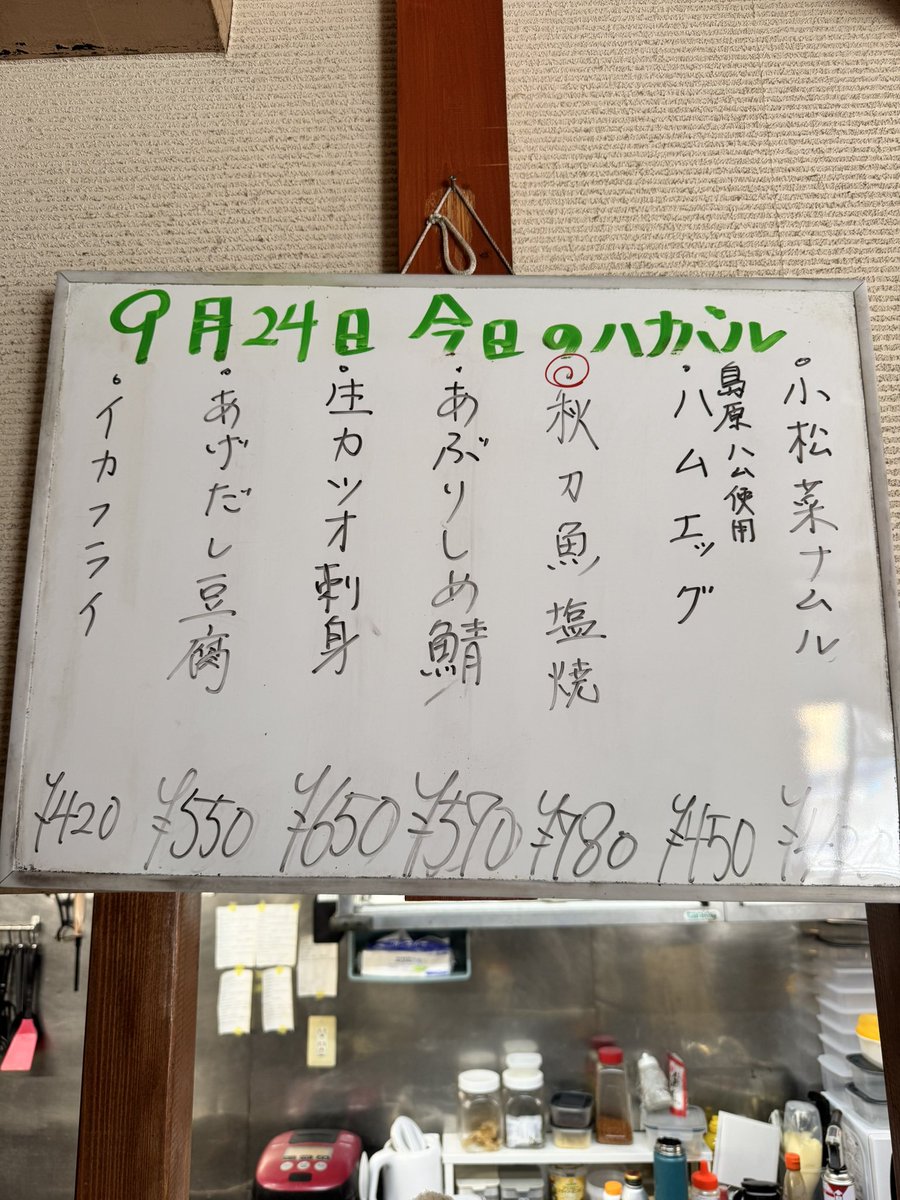 9月24日 今日のハカバル
小松菜ナムル ¥420
島原ハム使用
ハムエッグ ¥450
秋刀魚塩焼 ¥780
あぶりしめ鯖 ¥590
生カツオ刺身 ¥650
あげだし豆腐 ¥550
イカフライ ¥420